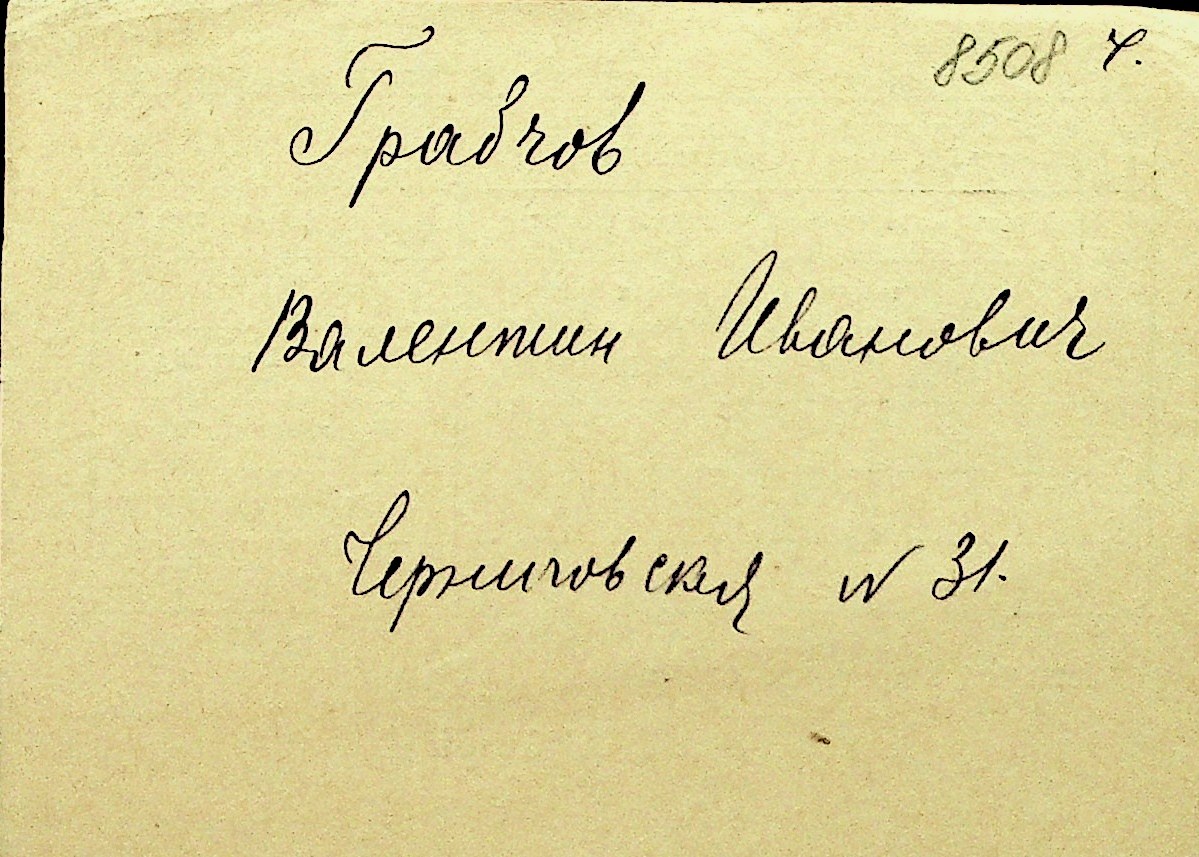 8508 ч.
Грабчов
Валентин Иванович
Черниговская N 31.